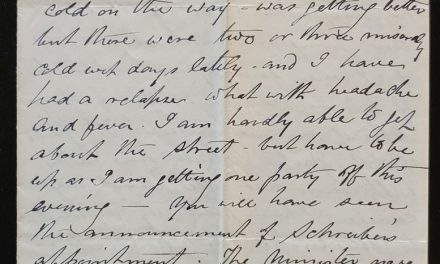 cold on the way - was getting better
but there were two or three miserly
cold wet days lately - and I have
had a relapse what with headache
and fever. I am hardly able to get
about the street - but have to be
up as I am getting one party off this
evening - You will have seen
the announcement of Schreiber's
appointment. The Minister